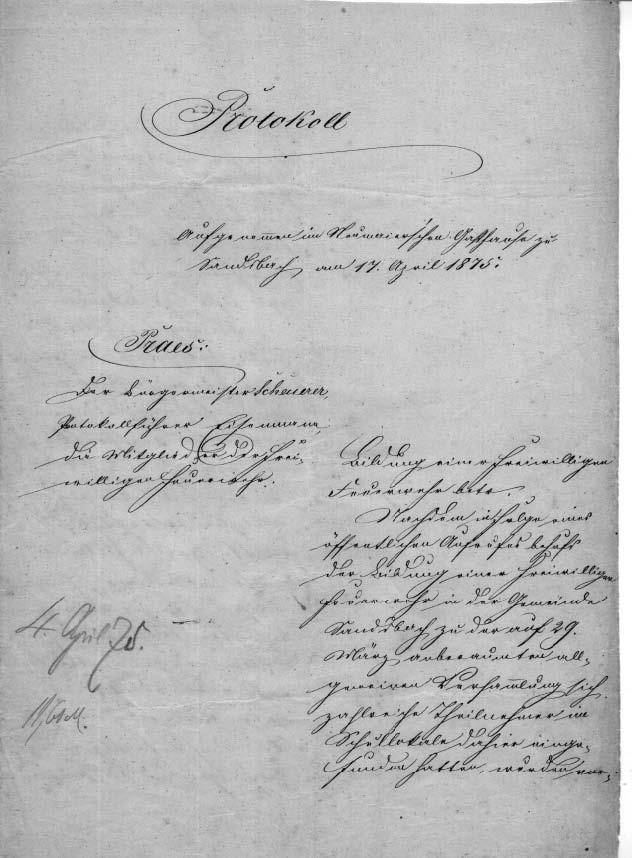 Protokoll
Aufgenommen im Neumaier'schen Gasthause zu
Sandsbach am 17. April 1875.
Praes:
Der Bürgermeister Scheuerer,
Protokollführer Eisenmann,
die Mitglieder der frei-
willigen Feuerwehr.
Bildung einer freiwilligen
Feuerwehr betr.
Nachdem in Folge eines
öffentlichen Aufrufes behufs
der Bildung einer freiwilligen
Feuerwehr in der Gemeinde
Sandsbach zu der auf 29.
März anberaumten all-
gemeinen Versammlung sich
zahlreiche Theilnehmer im
Schullokale dahier einge-
funden hatten, wurden vor-
4. April 75.